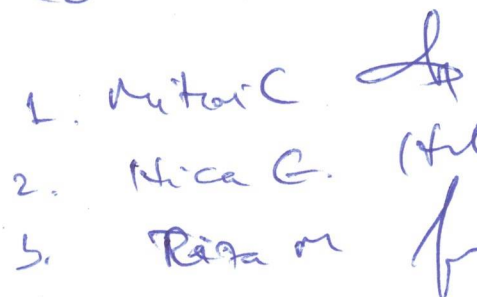 1. Mitroi C
2. Nica G.
3. Riza M